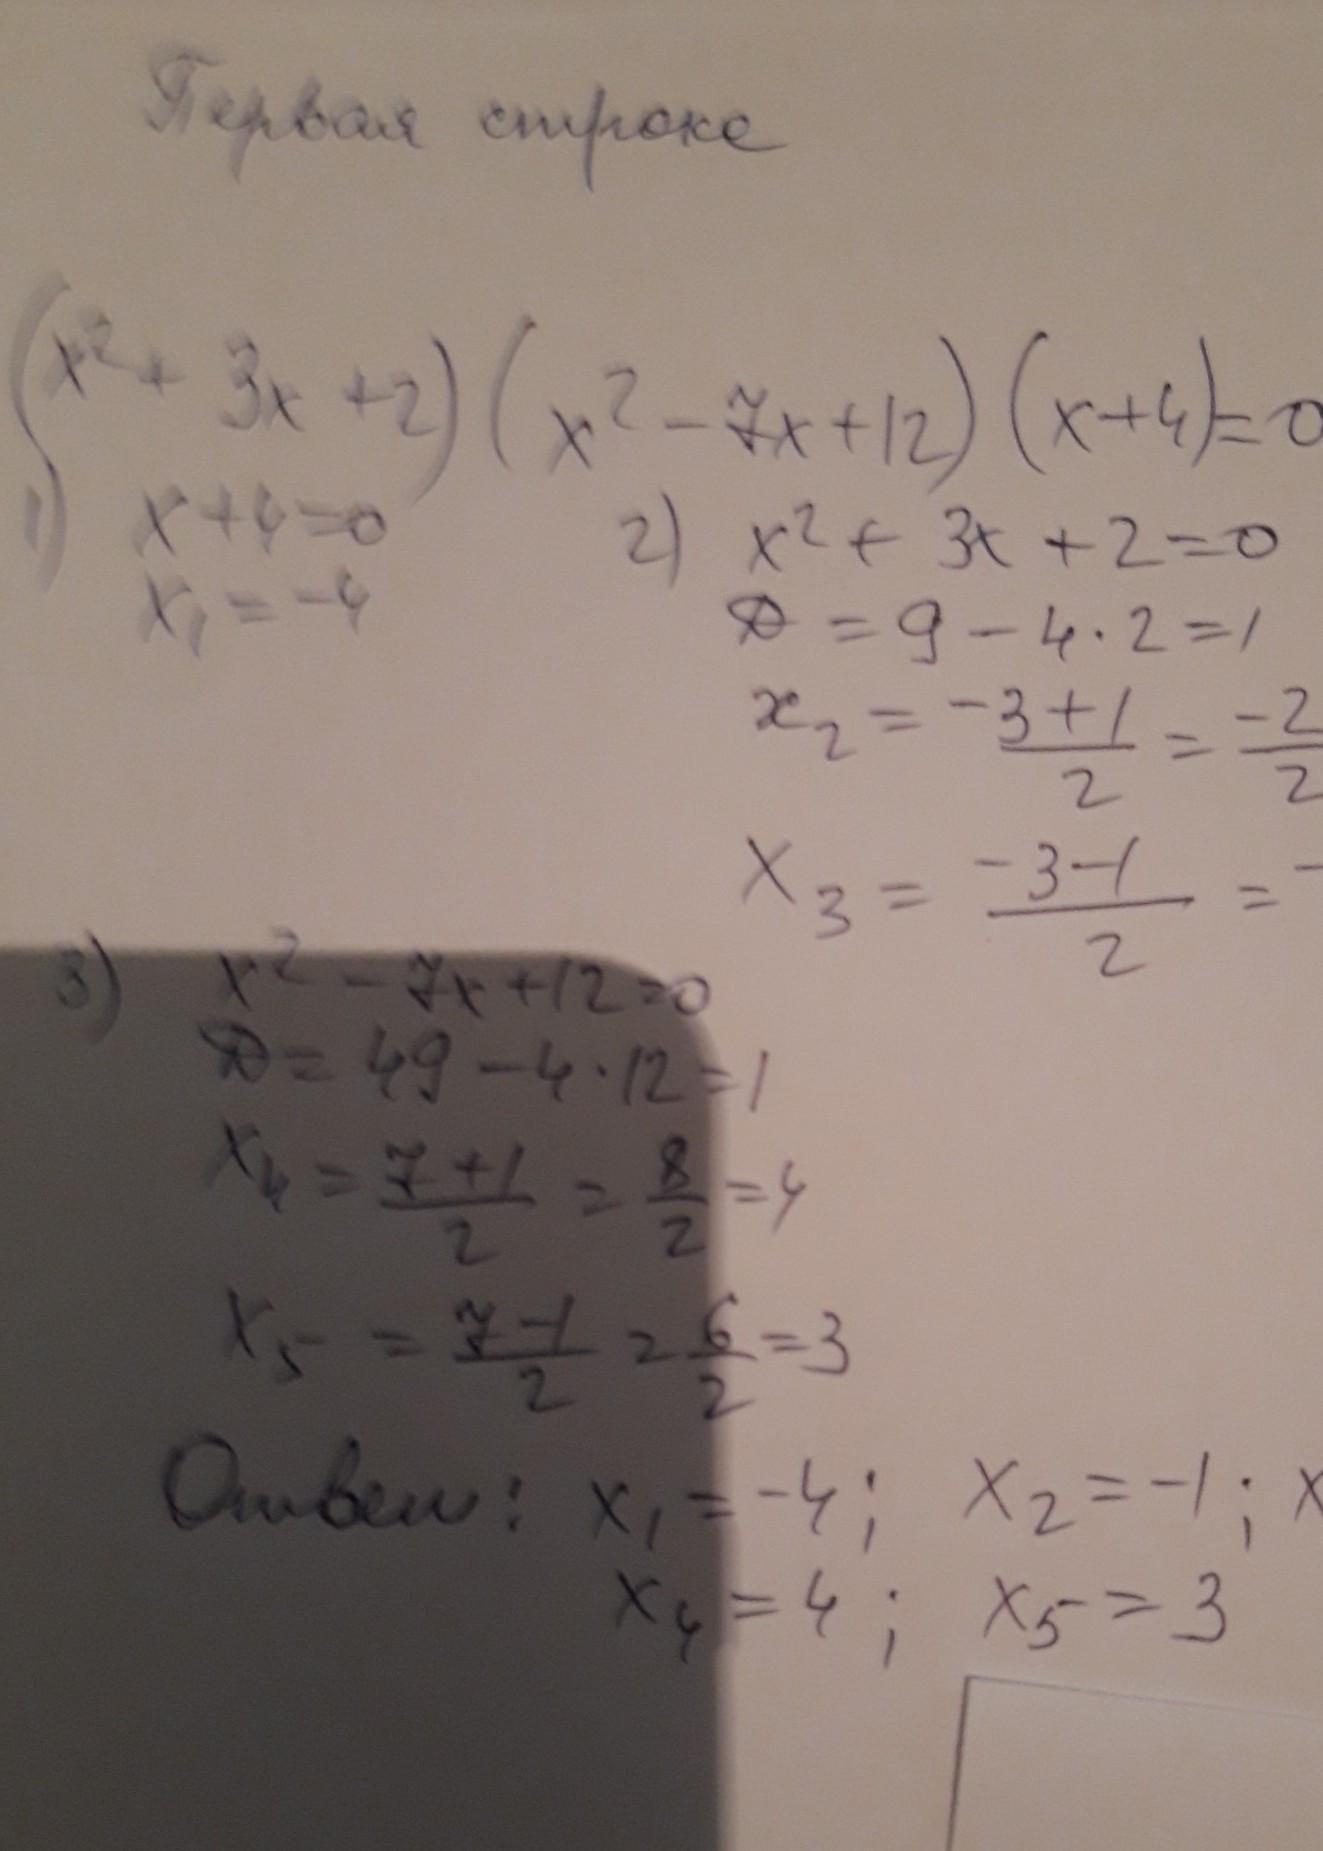 Первая строке
(x² + 3x + 2)(x² - 7x + 12)(x + 4) = 0
1) x + 4 = 0
x₁ = -4
2) x² + 3x + 2 = 0
D = 9 - 4 · 2 = 1
x₂ = (-3 + 1)/2 = -2/2
x₃ = (-3 - 1)/2 = -
3) x² - 7x + 12 = 0
D = 49 - 4 · 12 = 1
x₄ = (7 + 1)/2 = 8/2 = 4
x₅ = (7 - 1)/2 = 6/2 = 3
Ответ: x₁ = -4; x₂ = -1; x
x₄ = 4; x₅ = 3